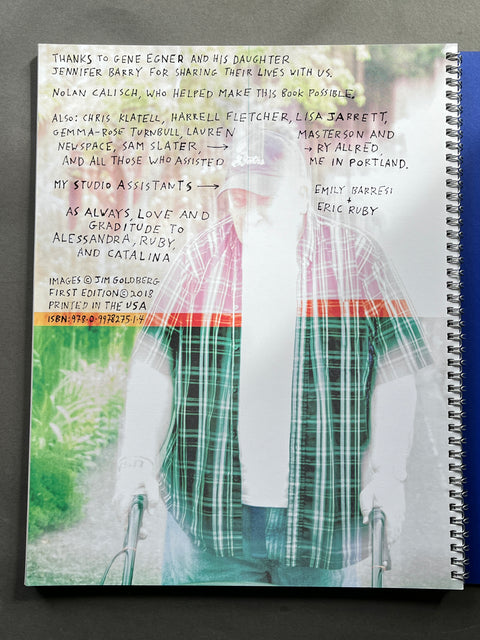 THANKS TO GENE EGNER AND HIS DAUGHTER
JENNIFER BARRY FOR SHARING THEIR LIVES WITH US.
NOLAN CALISCH, WHO HELPED MAKE THIS BOOK POSSIBLE.
ALSO: CHRIS KLATELL, HARRELL FLETCHER, LISA JARRETT,
GEMMA-ROSE TURNBULL, LAUREN MASTERSON AND
NEWSPACE, SAM SLATER, → → RY ALLRED,
AND ALL THOSE WHO ASSISTED ME IN PORTLAND.
MY STUDIO ASSISTANTS → EMILY BARRESI
+
ERIC RUBY
AS ALWAYS, LOVE AND
GRADITUDE TO
ALESSANDRA, RUBY,
AND CATALINA
IMAGES © JIM GOLDBERG
FIRST EDITION © 2018
PRINTED IN THE USA
ISBN: 978-0-9978275-1-4